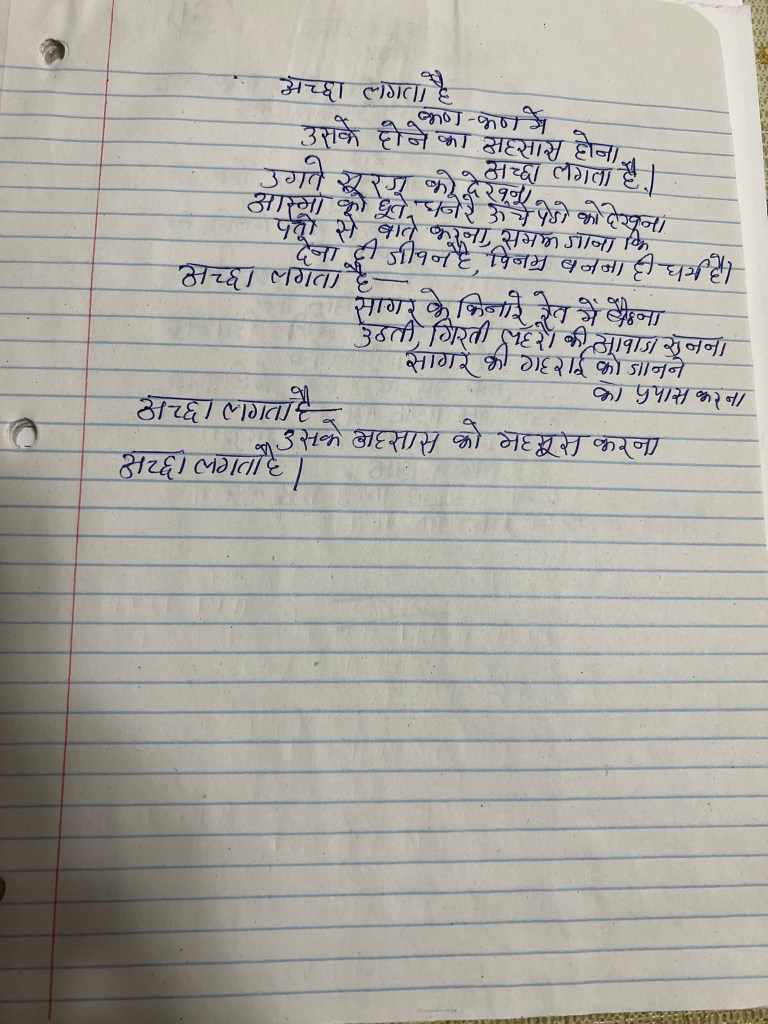 अच्छा लगता है
कण-कण में
उसके होने का अहसास होना
अच्छा लगता है।
उगते सूरज को देखना
आस्मां को छूते घनेरे ऊँचे पेडो को देखना
पत्तो से बाते करना, समझ जाना कि
देना ही जीवन है, विनम्र बनना ही धर्म है।
अच्छा लगता है—
सागर के किनारे रेत में बैठना
उठती, गिरती लहरों की आवाज सुनना
सागर की गहराई को जानने
का प्रयास करना
अच्छा लगता है—
उसके अहसास को महसूस करना
अच्छा लगता है।